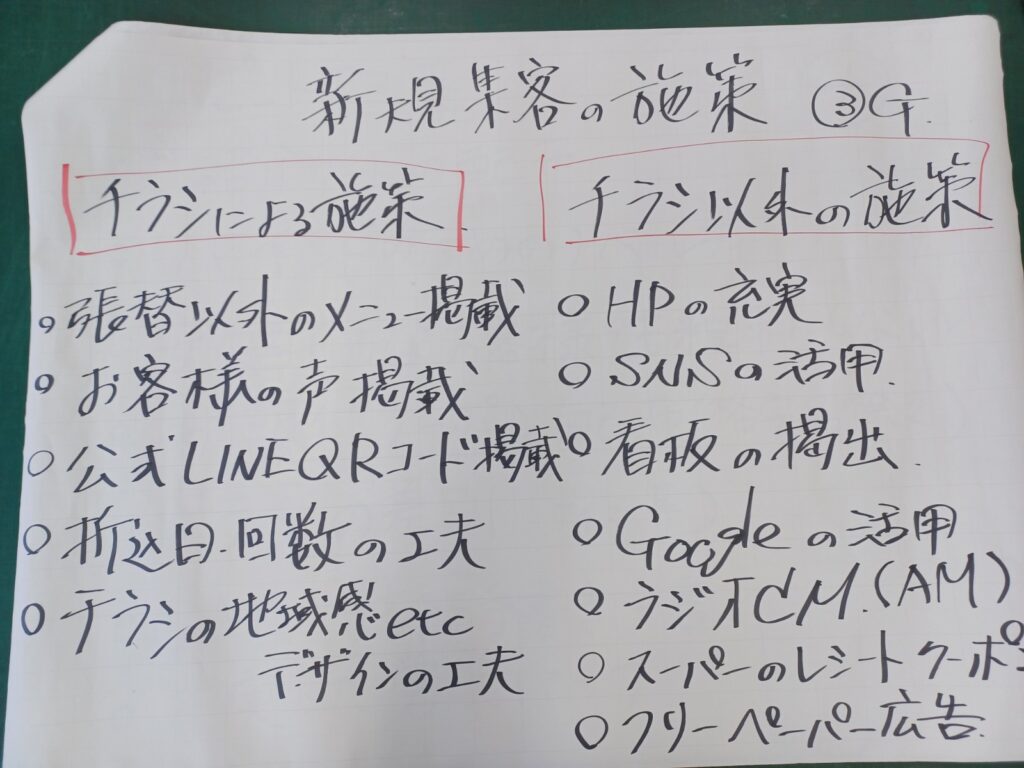 新規集客の施策 ③G.
チラシによる施策.
○張替以外のメニュー掲載
○お客様の声掲載
○公式LINEQRコード掲載
○折込日.回数の工夫
○チラシの地域感etc
デザインの工夫
チラシ以外の施策
○HPの充実
○SNSの活用.
○看板の掲出.
○Googleの活用
○ラジオCM.(AM)
○スーパーのレシートクーポン
○フリーペーパー広告.